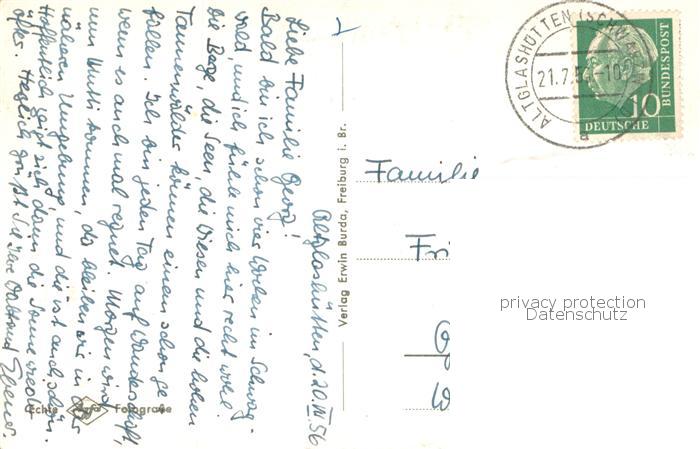 Altglashütten, d. 20.VII.56
Liebe Familie Georg!
Bald bin ich schon vier Wochen im Schwarz-
wald, und ich fühle mich hier recht wohl.
Die Berge, die Seen, die Wiesen und die hohen
Tannenwälder können einem schon ge-
fallen. Ich bin jeden Tag auf Wanderschaft,
wenn es auch mal regnet. Morgen wird
nun Mutti kommen, da bleiben wir in der
näheren Umgebung und die ist auch schön.
Hoffentlich zeigt sich dann die Sonne wieder
öfter. Herzlich grüßt Sie Ihre Waltraud
Echte Agfa Fotografie
Verlag Erwin Burda, Freiburg i. Br.
ALTGLASHÜTTEN (SCHWARZW)
21.7.56-10
a
10
DEUTSCHE
BUNDESPOST
Familie
Fri
privacy protection
Datenschutz